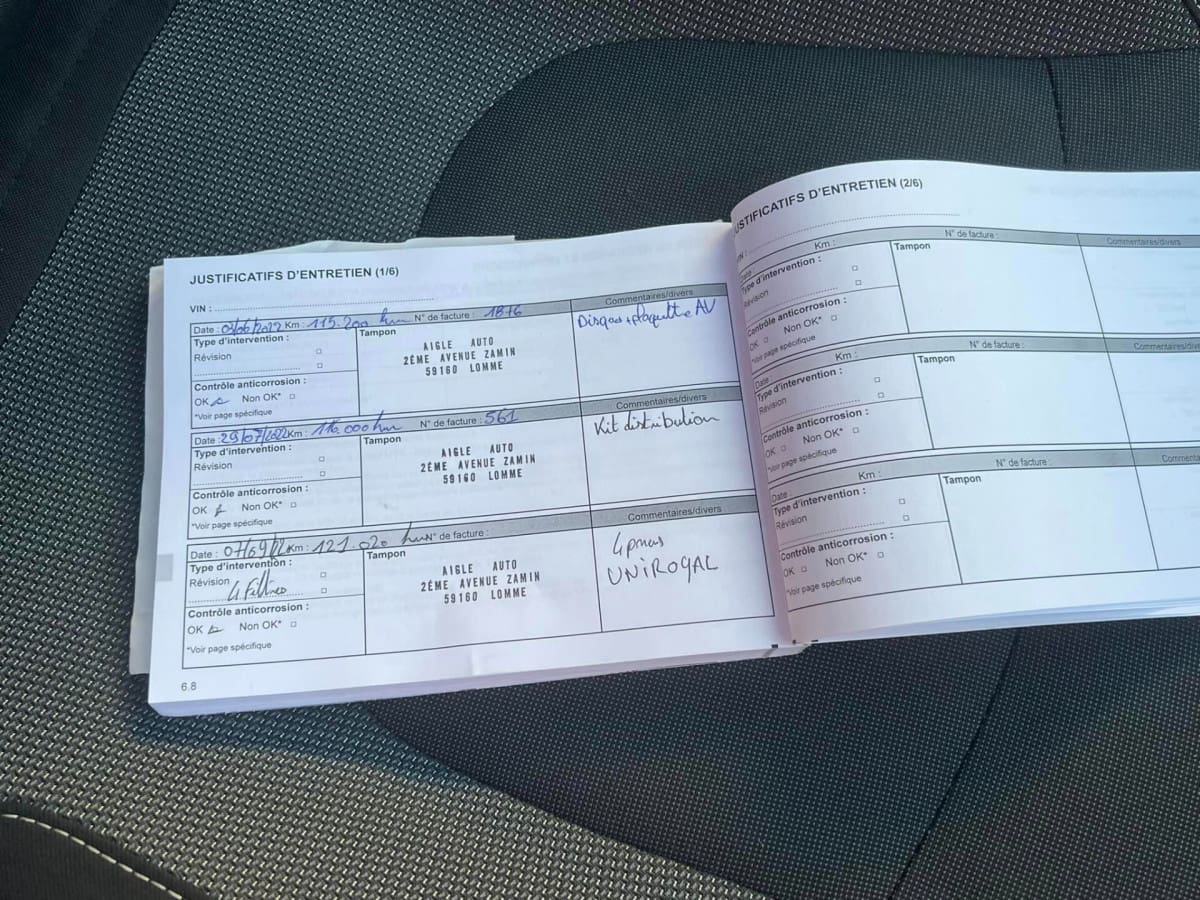 JUSTIFICATIFS D'ENTRETIEN (1/6)
VIN :
Date : 07/06/2022 Km : 115.200 km N° de facture : 1876
Commentaires/divers
Type d'intervention :
Tampon
Disques + plaquette AV
Révision
AIGLE AUTO
2ÉME AVENUE ZAMIN
59160 LOMME
Contrôle anticorrosion :
OK Non OK*
*Voir page spécifique
Date : 29/07/2022 Km : 116.000 km N° de facture : 561
Commentaires/divers
Type d'intervention :
Tampon
Kit distribution
Révision
AIGLE AUTO
2ÉME AVENUE ZAMIN
59160 LOMME
Contrôle anticorrosion :
OK Non OK*
*Voir page spécifique
Date : 07/09/22 Km : 121.020 km N° de facture :
Commentaires/divers
Type d'intervention :
Tampon
4 pneus
UNiROYAL
Révision
4 Filtres
AIGLE AUTO
2ÉME AVENUE ZAMIN
59160 LOMME
Contrôle anticorrosion :
OK Non OK*
*Voir page spécifique
6.8
JUSTIFICATIFS D'ENTRETIEN (2/6)
VIN :
Date Km : N° de facture :
Commentaires/divers
Type d'intervention :
Tampon
Révision
Contrôle anticorrosion :
OK Non OK*
*Voir page spécifique
Date Km : N° de facture :
Commentaires/divers
Type d'intervention :
Tampon
Révision
Contrôle anticorrosion :
OK Non OK*
*Voir page spécifique
Date Km : N° de facture :
Type d'intervention :
Tampon
Révision
Contrôle anticorrosion :
OK Non OK*
*Voir page spécifique